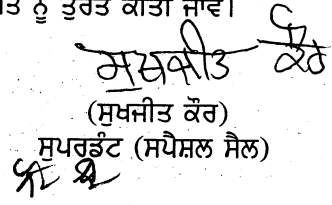 ਨੂੰ ਤੁਰੰਤ ਕੀਤਾ ਜਾਵੇ।
ਸੁਖਜੀਤ ਕੌਰ
(ਸੁਖਜੀਤ ਕੌਰ)
ਸੁਪਰਡੰਟ (ਸਪੈਸ਼ਲ ਸੈਲ)